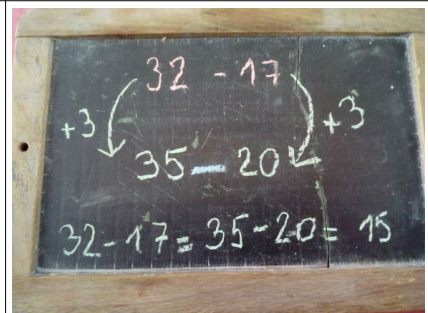 32 - 17
+3 +3
35 - 20
32 - 17 = 35 - 20 = 15